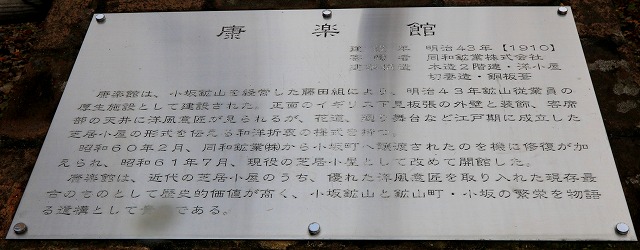 康楽館
建設年 明治43年【1910】
寄贈者 同和鉱業株式会社
建物構造 木造2階建・洋小屋
切妻造・銅板葺
康楽館は、小坂鉱山を経営した藤田組により、明治43年鉱山従業員の
厚生施設として建設された。正面のイギリス下見板張の外壁と装飾、客席
部の天井に洋風意匠が見られるが、花道、廻り舞台など江戸期に成立した
芝居小屋の形式を伝える和洋折衷の様式を持つ。
昭和60年2月、同和鉱業㈱から小坂町へ譲渡されたのを機に修復が加
えられ、昭和61年7月、現役の芝居小屋として改めて開館した。
康楽館は、近代の芝居小屋のうち、優れた洋風意匠を取り入れた現存最
古のものとして歴史的価値が高く、小坂鉱山と鉱山町・小坂の繁栄を物語
る遺構として貴重である。